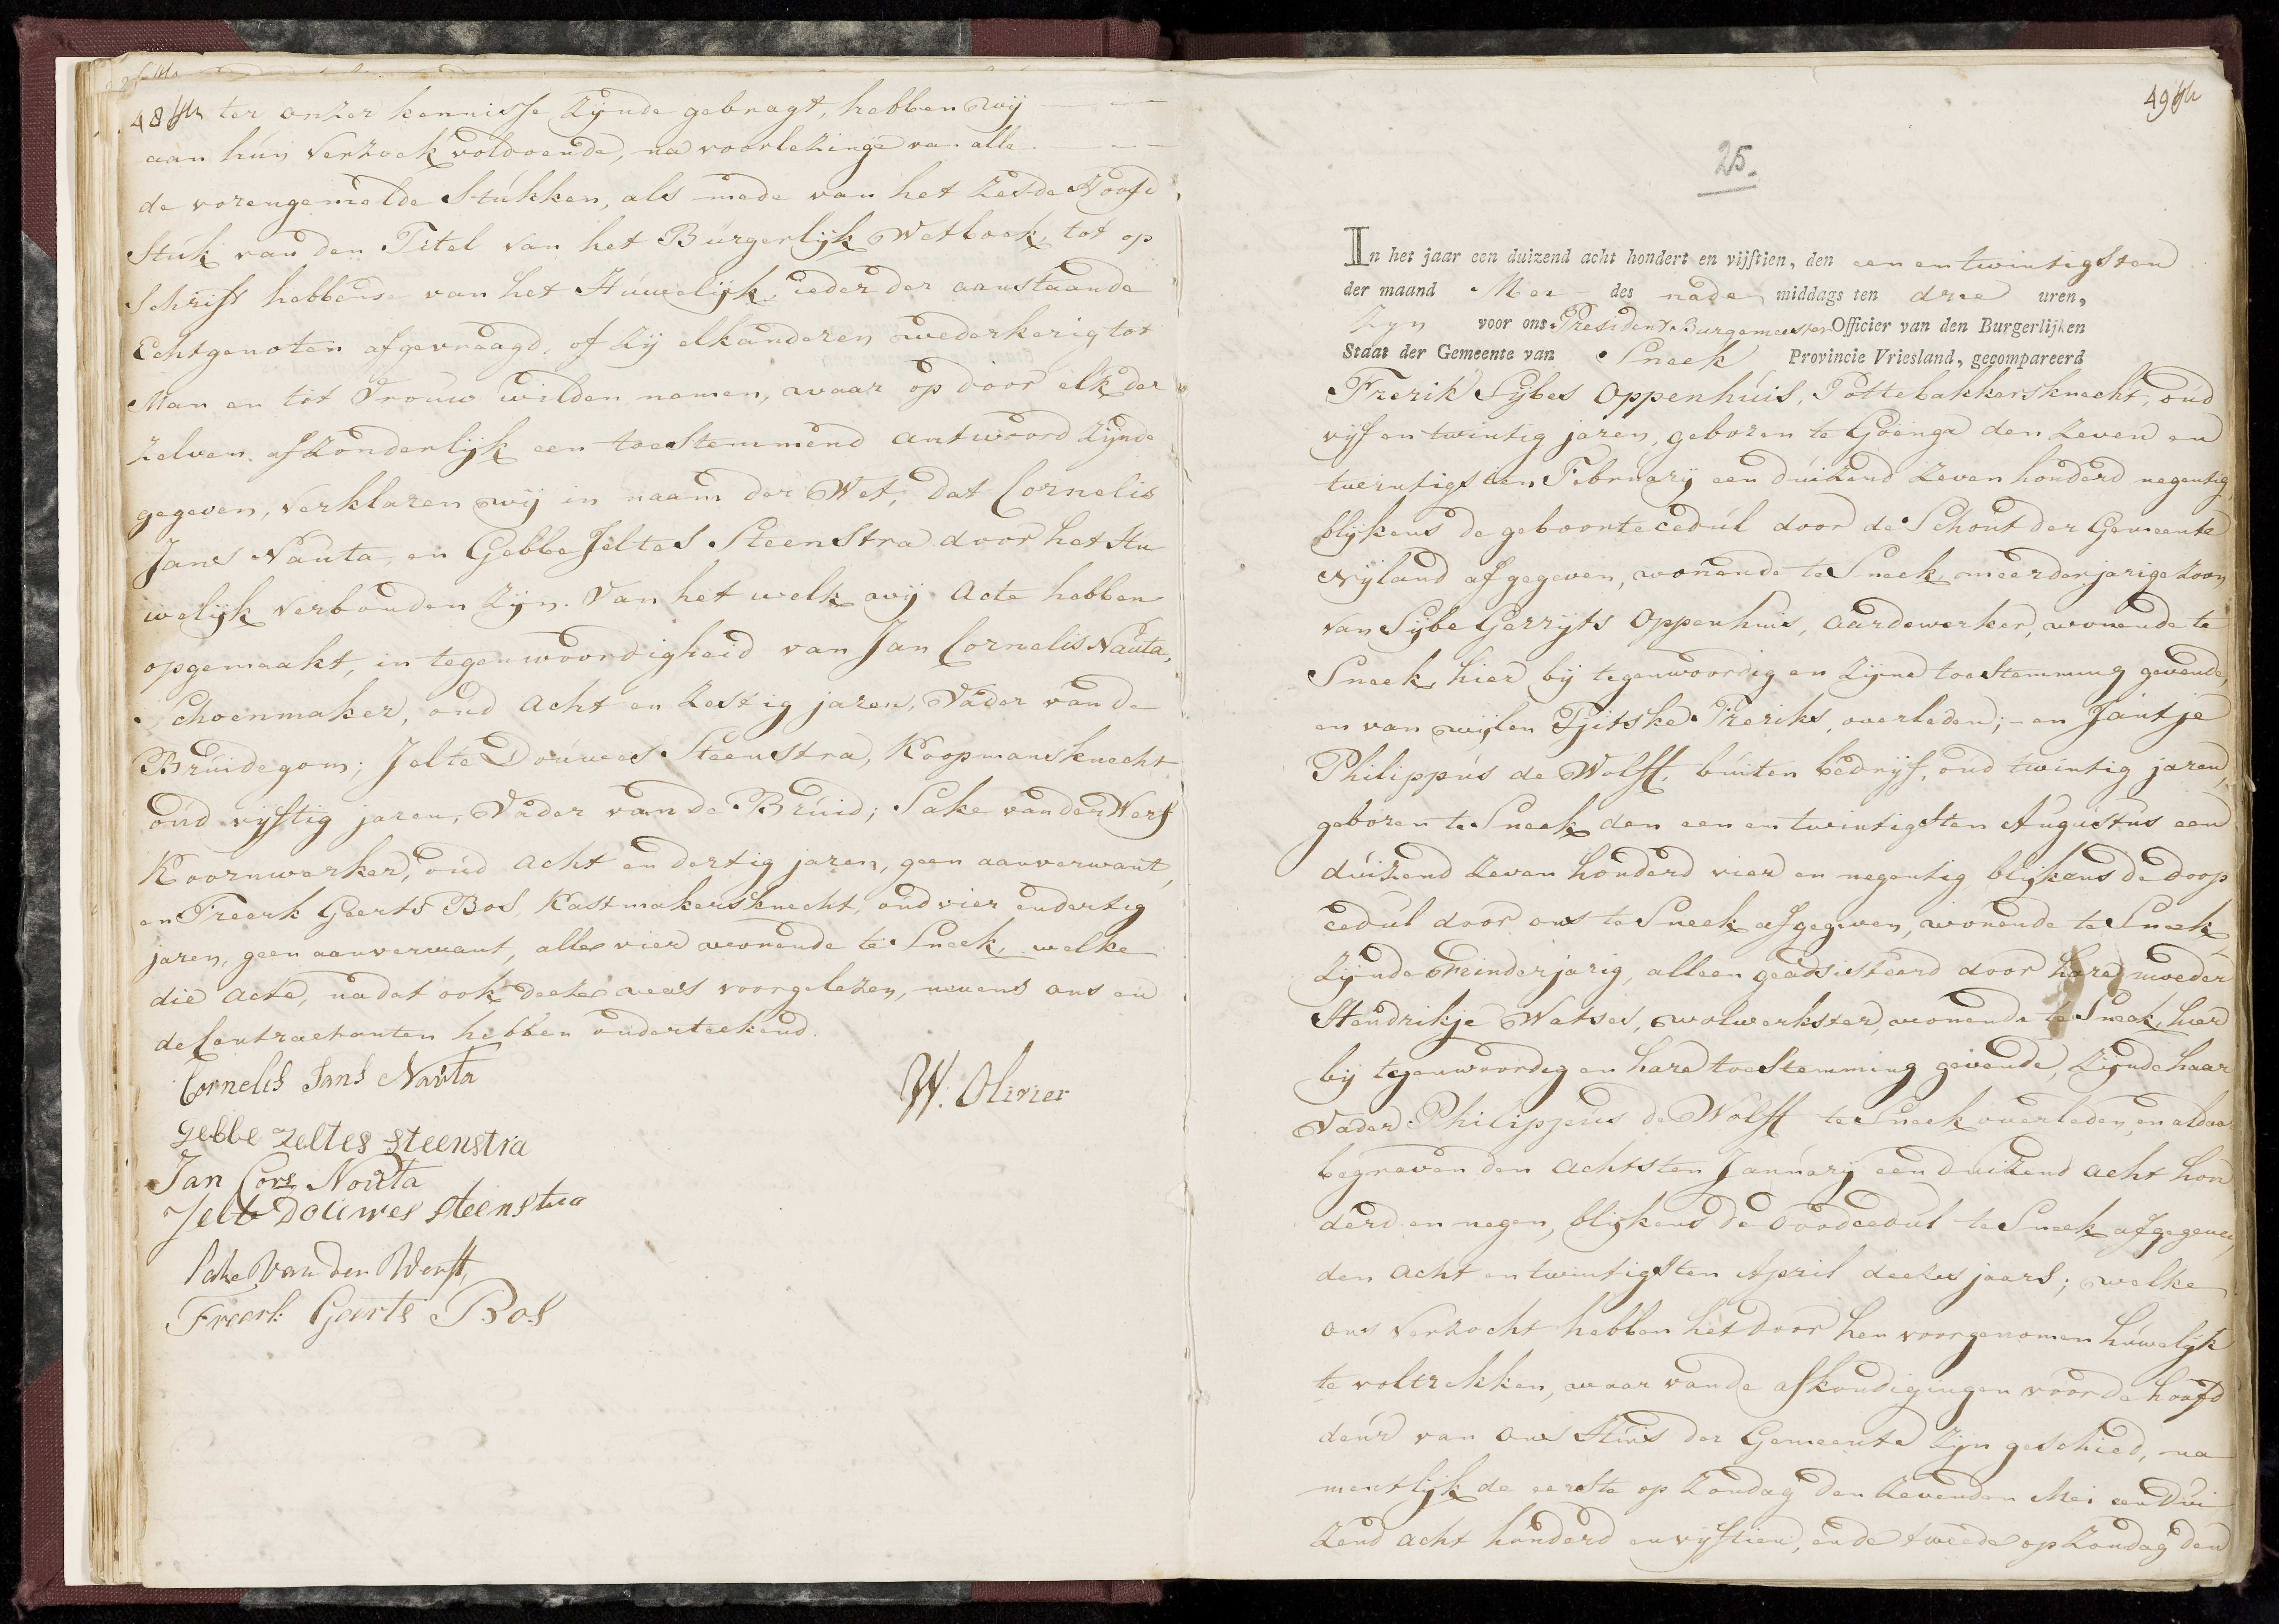 48
ter onzer kennisse zynde gebragt, hebben wij
aan hún verzoek voldoende, na voorlezinge van alle
de vorengemelde Stúkken, als mede van het zesde Hoofd
Stúk van den Titel van het Búrgerlijk Wetboek, tot op
Schrift hebbende van het Húwelijk, ieder der aanstaande
Echtgenoten afgevraagd, of zij elkanderen wederkerig tot
Man en tot Vrouw wilden nemen, waar op door elk der
zelven afzonderlijk een toestemmend antwoord zijnde
gegeven, verklaren wij in naam der Wet, dat Cornelis
Jans Nauta, en Gebbe Jeltes Steenstra door het Hu
welijk verbonden zijn. Van het welk wij Acte hebben
opgemaakt, in tegenwoordigheid van Jan Cornelis Naúta,
Schoenmaker, oud acht en zestig jaren, Vader van de
Brúidegom; Jelte Doúwes Steenstra, Koopmansknecht
oúd vijftig jaren, Vader van de Brúid; Sake van der Werf
Koornwerker, oúd acht en dertig jaren, geen aanverwant,
en Freerk Geerts Bos, Kastmakersknecht, oud vier en dertig
jaren, geen aanverwant, alle vier wonende te Sneek, welke
die acte, na dat ook deeze was voorgelezen, nevens ons en
de Contractanten hebben onderteekend.
Cornelis Jans Naúta
W. Olivier
gebbe Jeltes steenstra
Jan Cors Nouta
Jelte Douwes steenstra
Sake van der Werff
Freerk Geerts Bos
49
25.
In het jaar een duizend acht hondert en vijftien, den een en twintigsten
der maand Mei des nade middags ten drie uren,
Zyn voor ons President-Burgemeester Officier van den Burgerlijken
Staat der Gemeente van Sneek Provincie Vriesland, gecompareerd
Frerik Sijbes Oppenhúis, Pottebakkersknecht, oúd
vijf en twintig jaren, geboren te Goënga den zeven en
twintigsten Februarij een dúizend zeven honderd negentig,
blijkens de geboorte cedúl door de Schout der Gemeente
Nijland afgegeven, wonende te Sneek, meerderjarige zoon
van Sijbe Gerrijts Oppenhuis, aardewerker, wonende te
Sneek, hier bij tegenwoordig en zijne toestemming gevende,
en van wijlen Tjitske Freriks, overleden; - en Jantje
Philippús de Wolff, búiten bedrijf, oúd twintig jaren,
geboren te Sneek den een en twintigsten Augústus een
dúizend zeven honderd vier en negentig blijkens de doop
cedul door ons te Sneek afgegeven, wonende te Sneek
zijnde minderjarig, alleen geadsisteerd door hare moeder
Hendrikje Watses, wolwerkster, wonende te Sneek, hier
bij tegenwoordig en hare toestemming gevende, zijnde haar
Vader Philippus de Wolff te Sneek overleden, en aldaar
begraven den achtsten Janúarij een duizend acht hon
derd en negen, blijkens de doodcedul te Sneek afgegeven,
den acht en twintigsten April deezes jaars; welke
ons verzocht hebben het door hen voorgenomen húwelijk
te voltrekken, waar van de afkondigingen voor de hoofd
deúr van ons Húis der Gemeente zijn geschied, na
mentlijk de eerste op Zondag den zevenden Mei een dui
zend acht honderd en vijftien, en de tweede op Zondag den